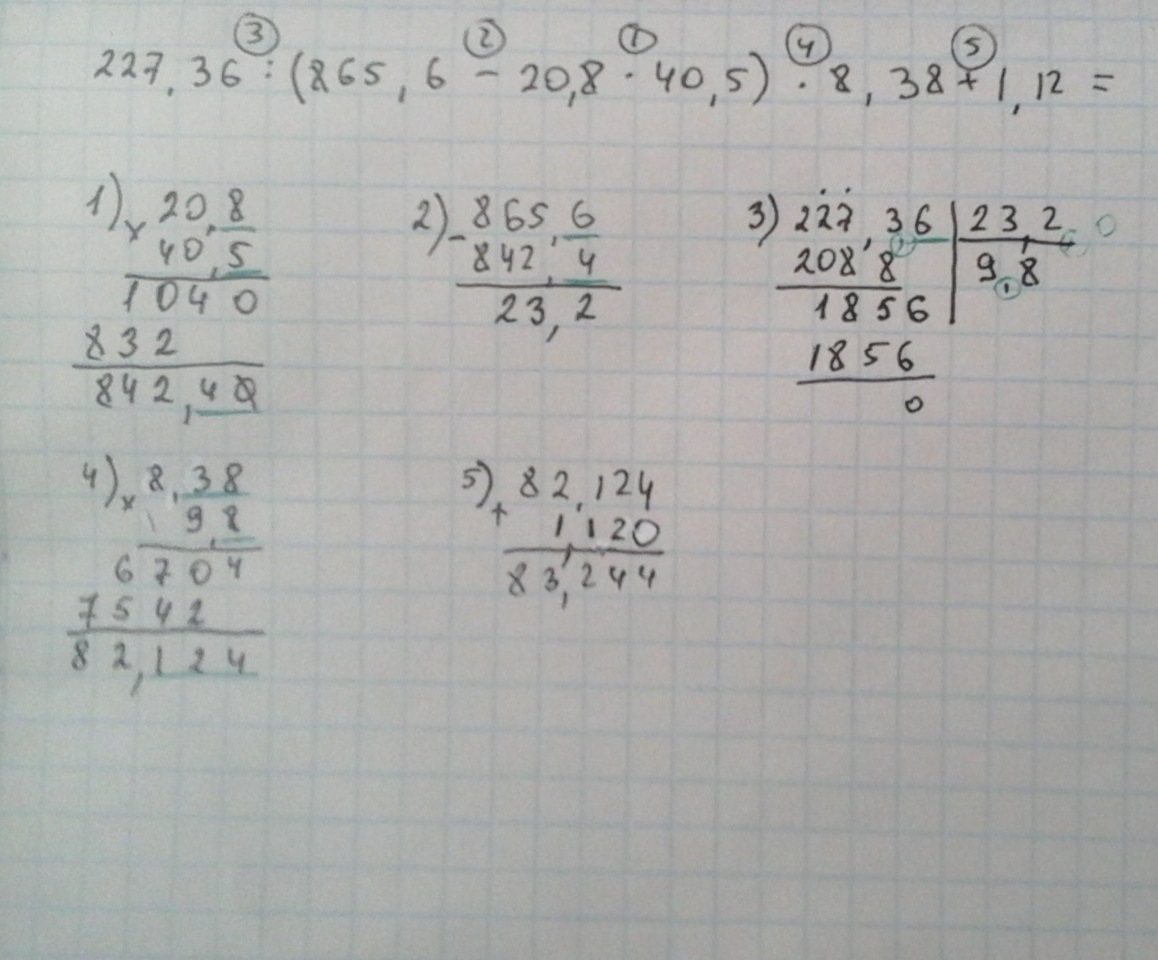 ③ ② ① ④ ⑤
227,36 : (865,6 − 20,8 · 40,5) · 8,38 + 1,12 =
1) × 20,8
40,5
1040
832
842,40
2) − 865,6
842,4
23,2
3) 227,36 | 23,2 0
208 8 | 9,8
1856
1856
0
4) × 8,38
9,8
6704
7542
82,124
5) + 82,124
1,120
83,244